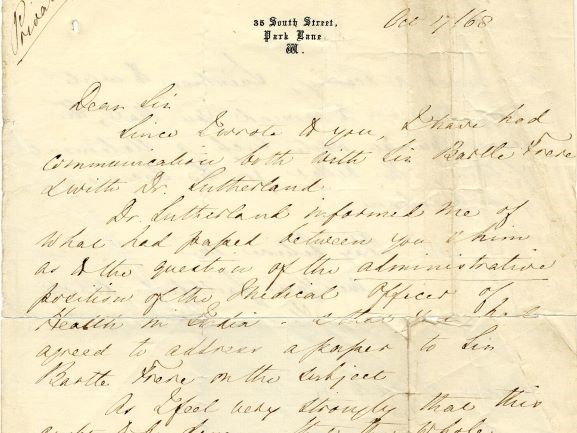 Private
35 South Street,
Park Lane
W.
Oct 17/68
Dear Sir
Since I wrote to you, I have had
communication both with Sir Bartle Frere
& with Dr. Sutherland
Dr. Sutherland informed me of
what had passed between you & him
as to the question of the administrative
position of the Medical Officer of
Health in India - & that you had
agreed to address a paper to Sir
Bartle Frere on the subject
As I feel very strongly that this